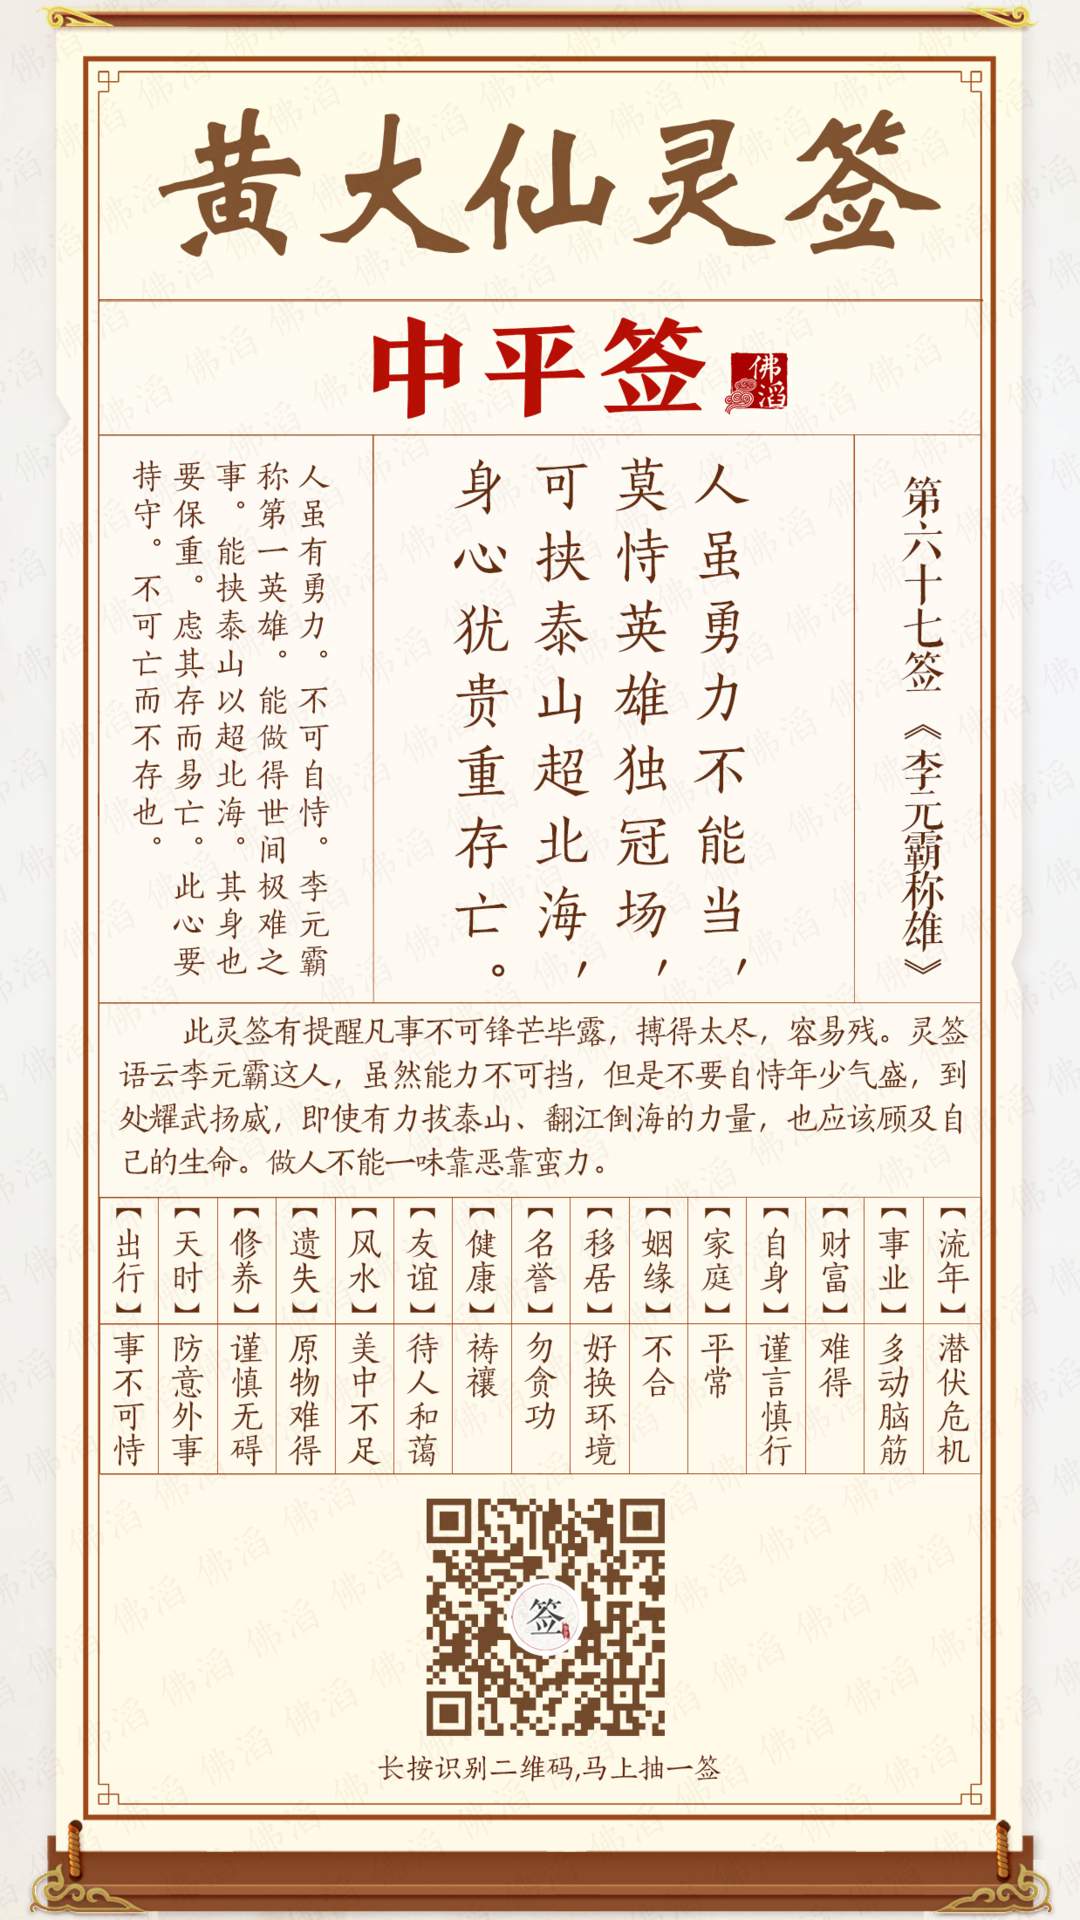 黄大仙灵签
中平签
佛滔
第六十七签《李元霸称雄》
人虽勇力不能当，
莫恃英雄独冠场，
可挟泰山超北海，
身心犹贵重存亡。
人虽有勇力。不可自恃。李元霸
称第一英雄。能做得世间极难之
事。能挟泰山以超北海。其身也
要保重。虑其存而易亡。此心要
持守。不可亡而不存也。
此灵签有提醒凡事不可锋芒毕露，搏得太尽，容易残。灵签
语云李元霸这人，虽然能力不可挡，但是不要自恃年少气盛，到
处耀武扬威，即使有力拔泰山、翻江倒海的力量，也应该顾及自
己的生命。做人不能一味靠恶靠蛮力。
【流年】潜伏危机
【事业】多动脑筋
【财富】难得
【自身】谨言慎行
【家庭】平常
【姻缘】不合
【移居】好换环境
【名誉】勿贪功
【健康】祷禳
【友谊】待人和蔼
【风水】美中不足
【遗失】原物难得
【修养】谨慎无碍
【天时】防意外事
【出行】事不可恃
签
长按识别二维码,马上抽一签